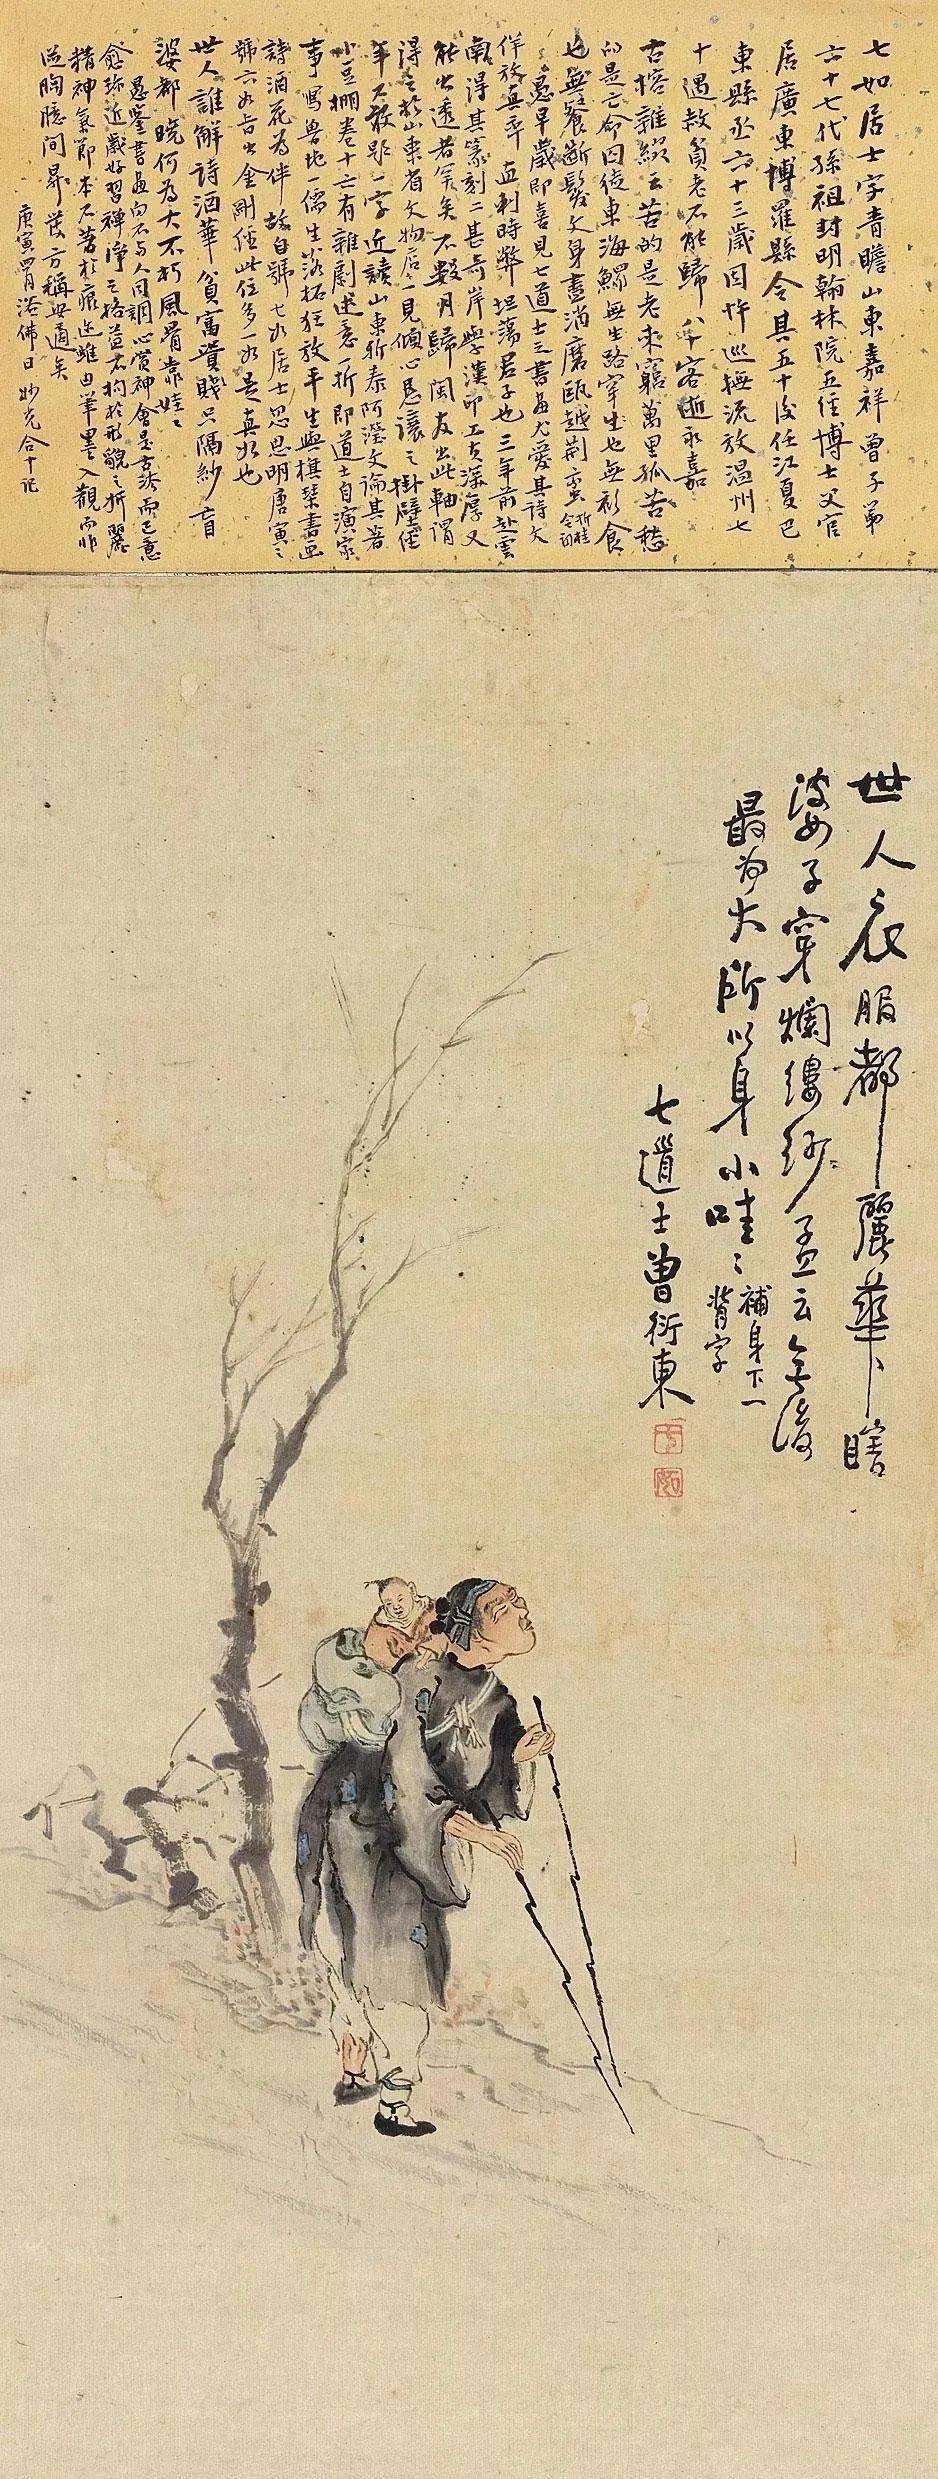 七如居士字青瞻山東嘉祥曾子第
六十七代孫祖封明翰林院五經博士父官
居廣東博羅縣令其五十後任江夏巴
東縣丞六十三歲因忤巡撫流放温州七
十遇赦貧老不能歸八十客逝永嘉
古榕雜綴云苦的是老來窮萬里孤苦愁
的是亡命囚徒東海鰥無生路窄生也無衫食
也無餐斷髮文身盡消磨甌越荆蠻
愚早歲即喜見七道士之書畫尤愛其詩文
作放真率直刺時弊坦蕩君子也三年前赴雲
南得其篆刻二甚奇岸學漢印工支深厚又
能出透者矣不數月歸閩友出此軸謂
得之於山東省文物店一見傾心懇讓之掛壁經
年不敢題一字近讀山東新泰阿瀅文論其著
小豆棚卷十六有雜劇述意一折即道士自演家
事寫魯地一儒生落拓狂放平生與棋琴書畫
詩酒花為伴故自號七如居士忽思明唐寅之
號六如旨出金剛經此住多一如是真如也
世人誰解詩酒華貧富貴賤只隔紗盲
婆都曉何為大不朽風骨靠娃娃
愚鑒書畫向不与人同調心赏神會是古法而已意
愈珎近歲好習禪淨之格益不拘於形貌之折麗
精神氣節本不著於痕迹雖由筆墨入觀而非
從胸臆間昇發方稱安適矣
庚寅四月浴佛日妙光合十记
世人衣服都麗華卜瞎
婆子穿爛縷紗孟云無後
最為大所以身小哇哇
補身下一
背字
七道士曾衍東